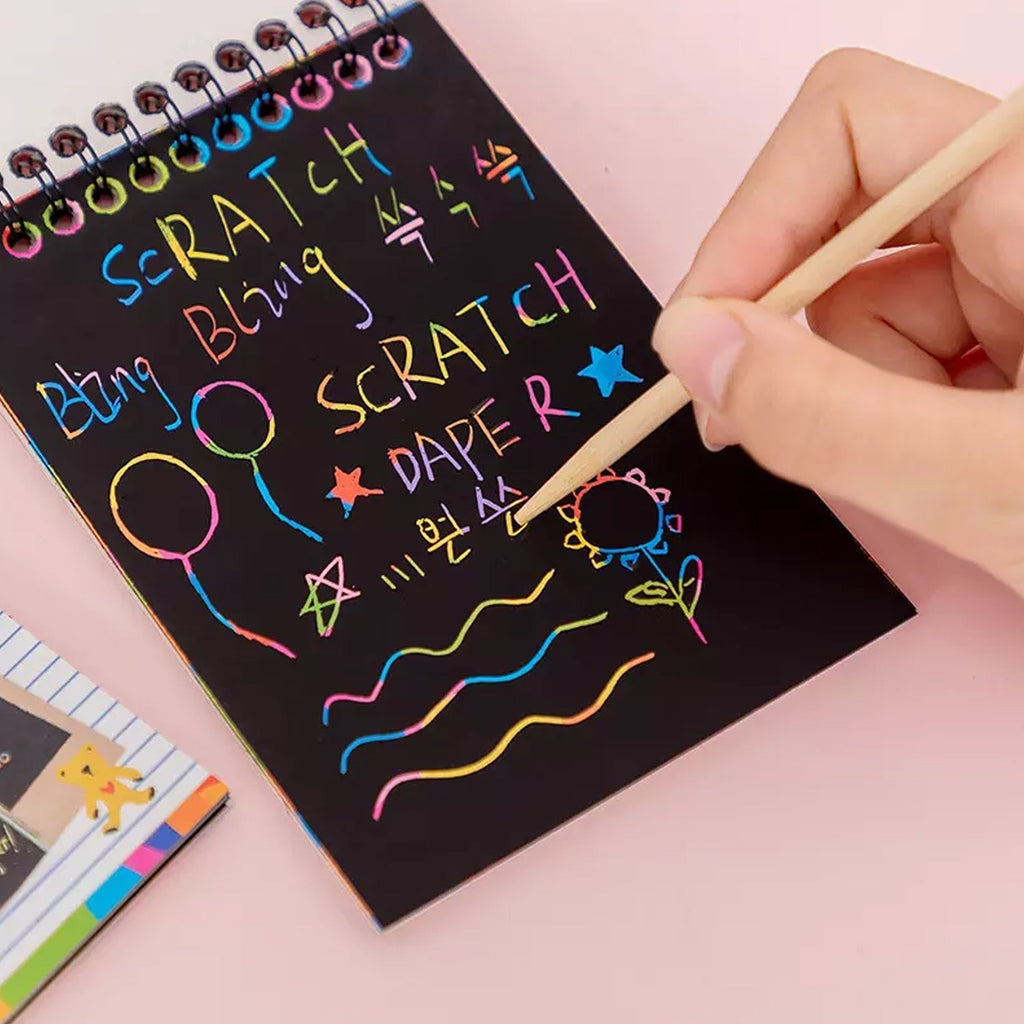 SCRATCH
쓱 슥 쓱
Bling Bling
SCRATCH
DAPER